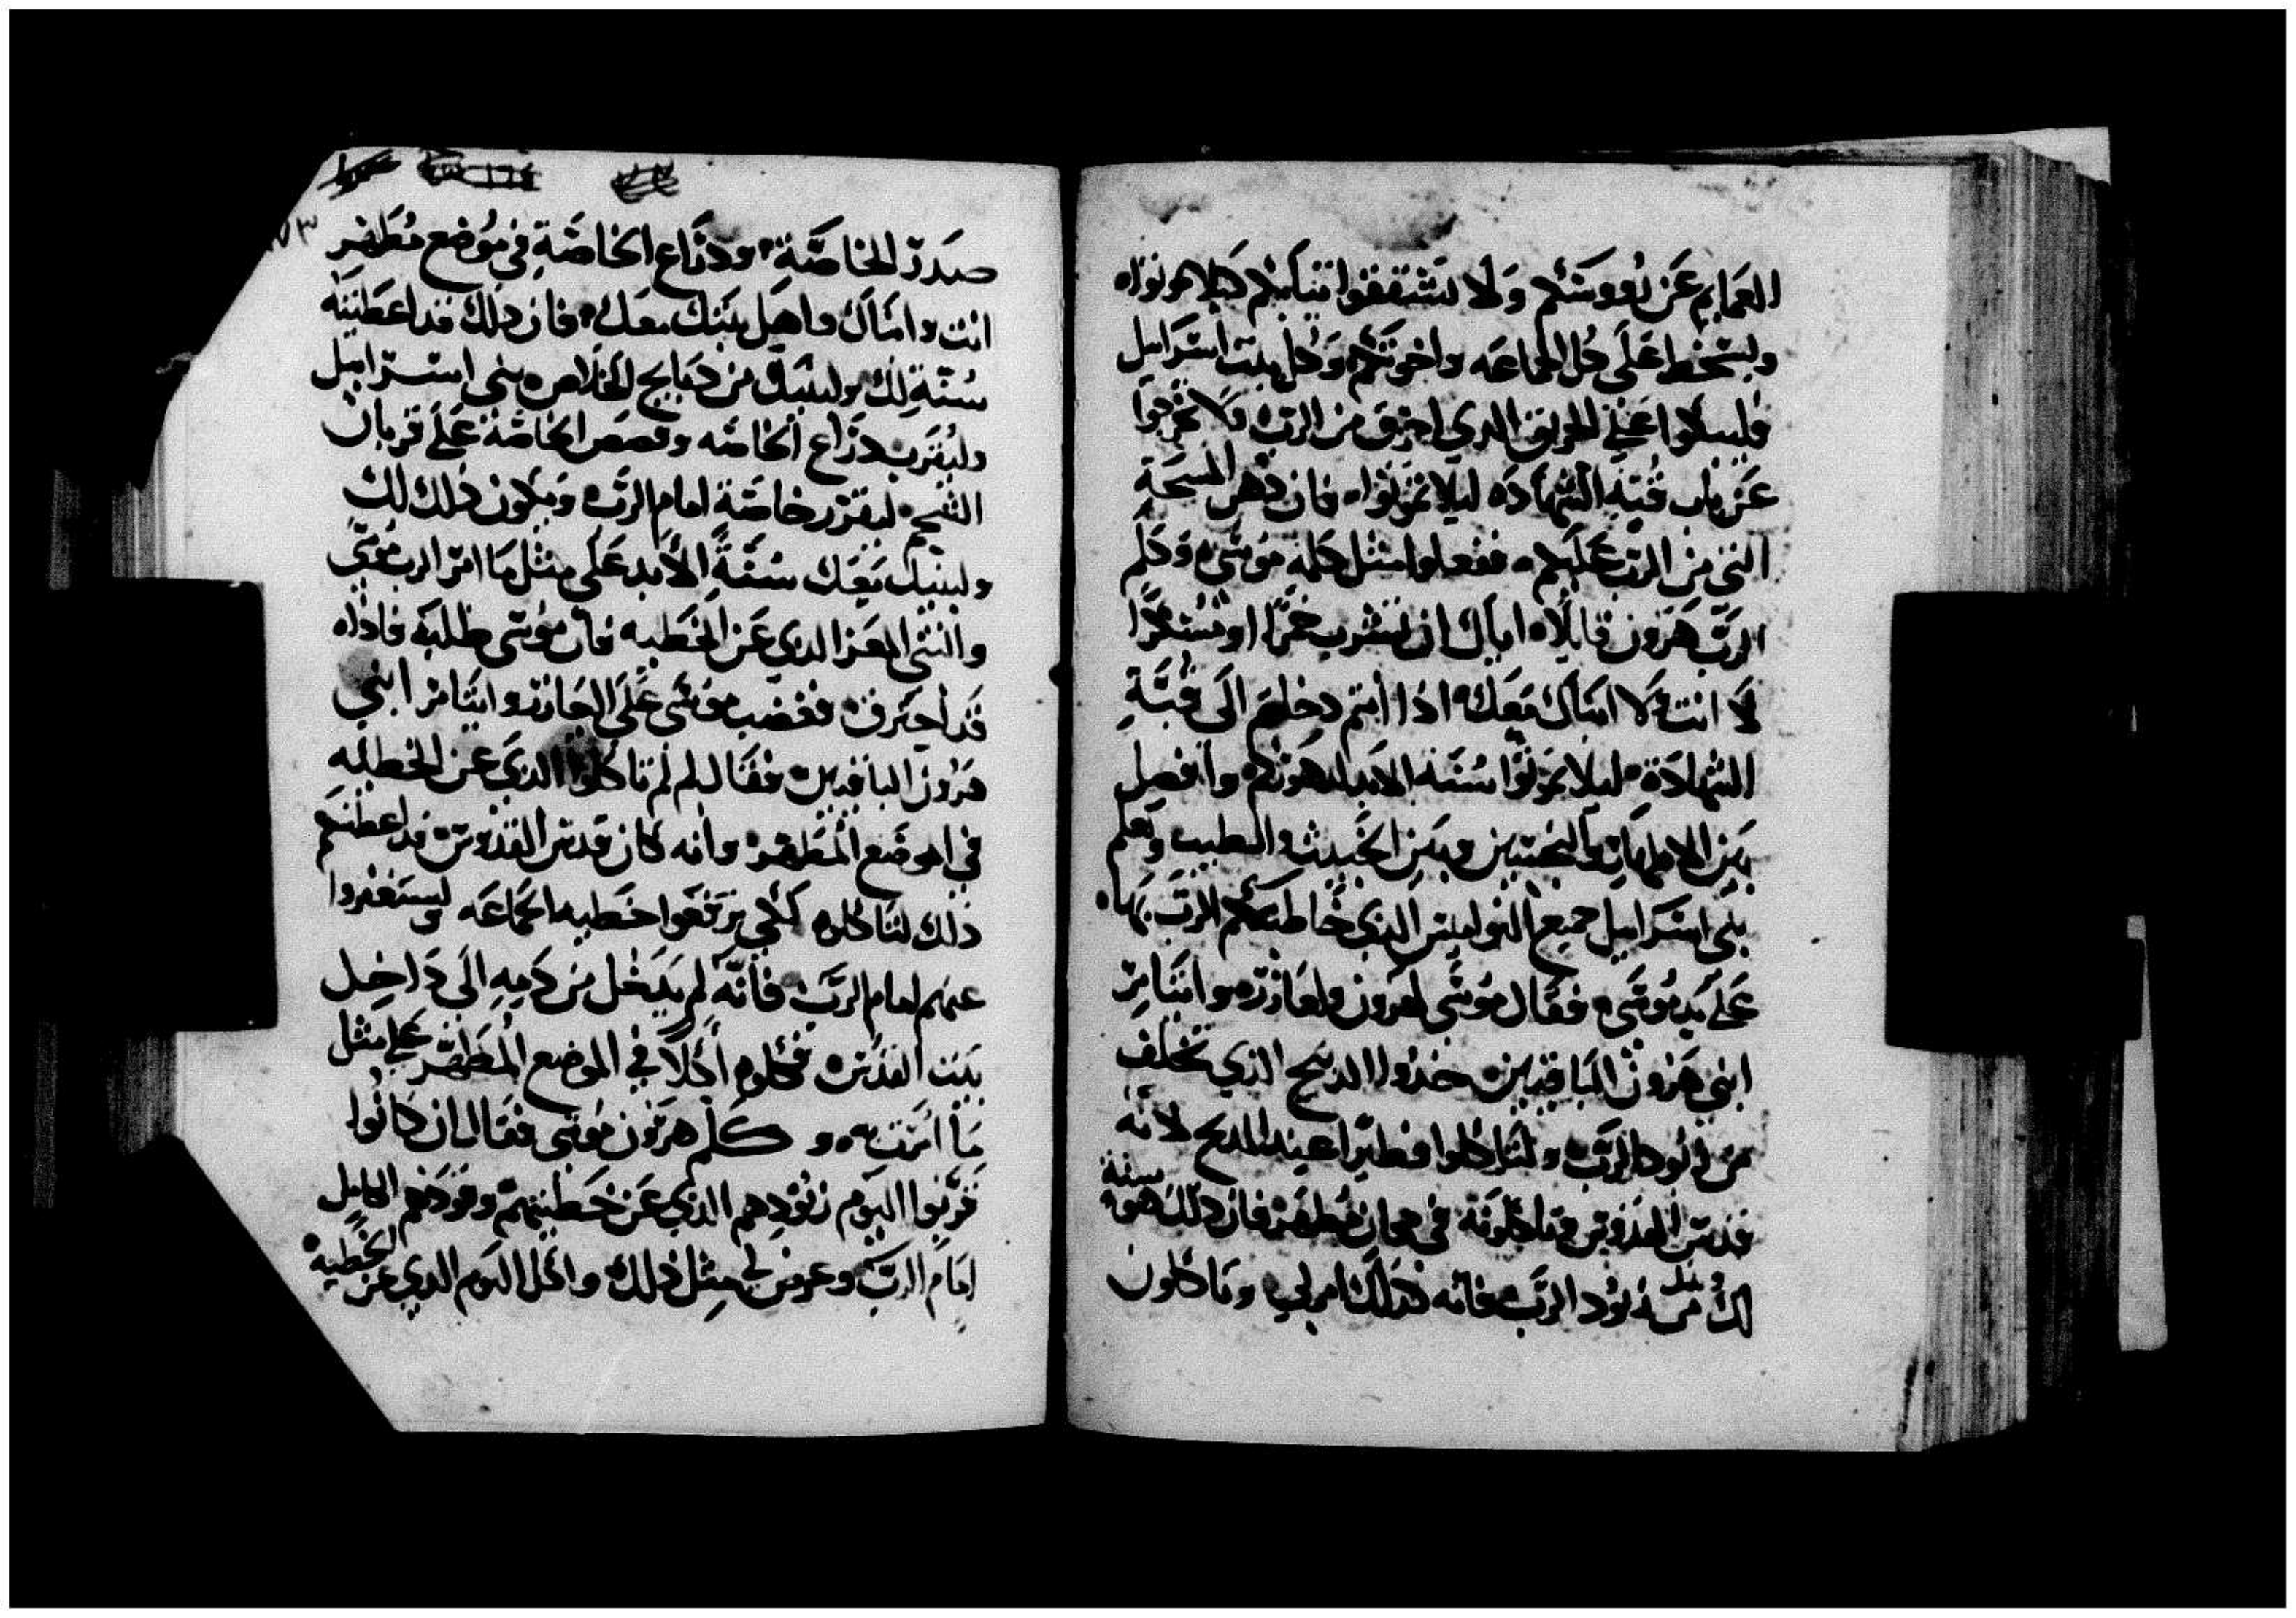 العمايم عن رووسكم ولا تشققوا ثيابكم كيلا تموتوا
ويسخط على كل الجماعه واخوتكم وكل بيت اسرايل
فليبكوا على الحريق الدي احرق من الرب ولا تخرجوا
عن باب قبة الشهادة ليلا تموتوا فان دهن المسحة
التي من الرب عليكم ففعلوا مثل كلمة موسى وكلم
الرب هرون قايلا اياك ان تشرب خمرا او مسكرا
لا انت ولا ابناك معك ادا انتم دخلتم الى قبة
الشهادة ليلا تموتوا سنة الابد لدهوركم وافصل
بين الاطهار والنجسين وبين الخبيث والطيب وتعلم
بني اسرايل جميع النواميس الدي خاطبكم الرب بها
على يد موسى فقال موسى لهرون ولعازر وايتامر
ابني هرون الباقيين خدوا الدبيح الدي تخلف
من وقود الرب ولتاكلوا فطيرا عند المدبح لانه
قدس القدوس وتاكلونه في مكان مطهر فان دلك هو سنة
لك ولبنيك من وقود الرب فانه كدلك امر لي وتاكلون
صدر الخاصة ودراع الخاصة في موضع مطهر
انت وابناك واهل بيتك معك فان دلك قد اعطيته
سنة لك ولبنيك من دبايح الخلاص بني اسرايل
وليقرب دراع الخاصه وقصص الخاصة على قربان
الشحم ليقرر خاصة امام الرب ويكون دلك لك
ولبنيك معك سنة الابد على مثل ما امر الرب موسى
والتني المعز الدي عن الخطيه فان موسى طلبه فادا
قد احترق فغضب موسى على العازر وايتامر ابني
هرون الباقيين فقال لم لم تاكلوا الدي عن الخطيه
في الموضع المطهر وانه كان قدس القدوس قد اعطيتم
دلك لتاكلوه لكي ترفعوا خطيه الجماعه وتستغفروا
عنهم امام الرب فانه لم يدخل من دمه الى داخل
بيت القدس فكلوه اكلا في الموضع المطهر على مثل
ما امرت وكلم هرون موسى فقال ان كانوا
قربوا اليوم وقودهم الدي عن خطيتهم وقودهم الكامل
امام الرب وعرض لي مثل دلك واكل اليوم الدي عن الخطيه